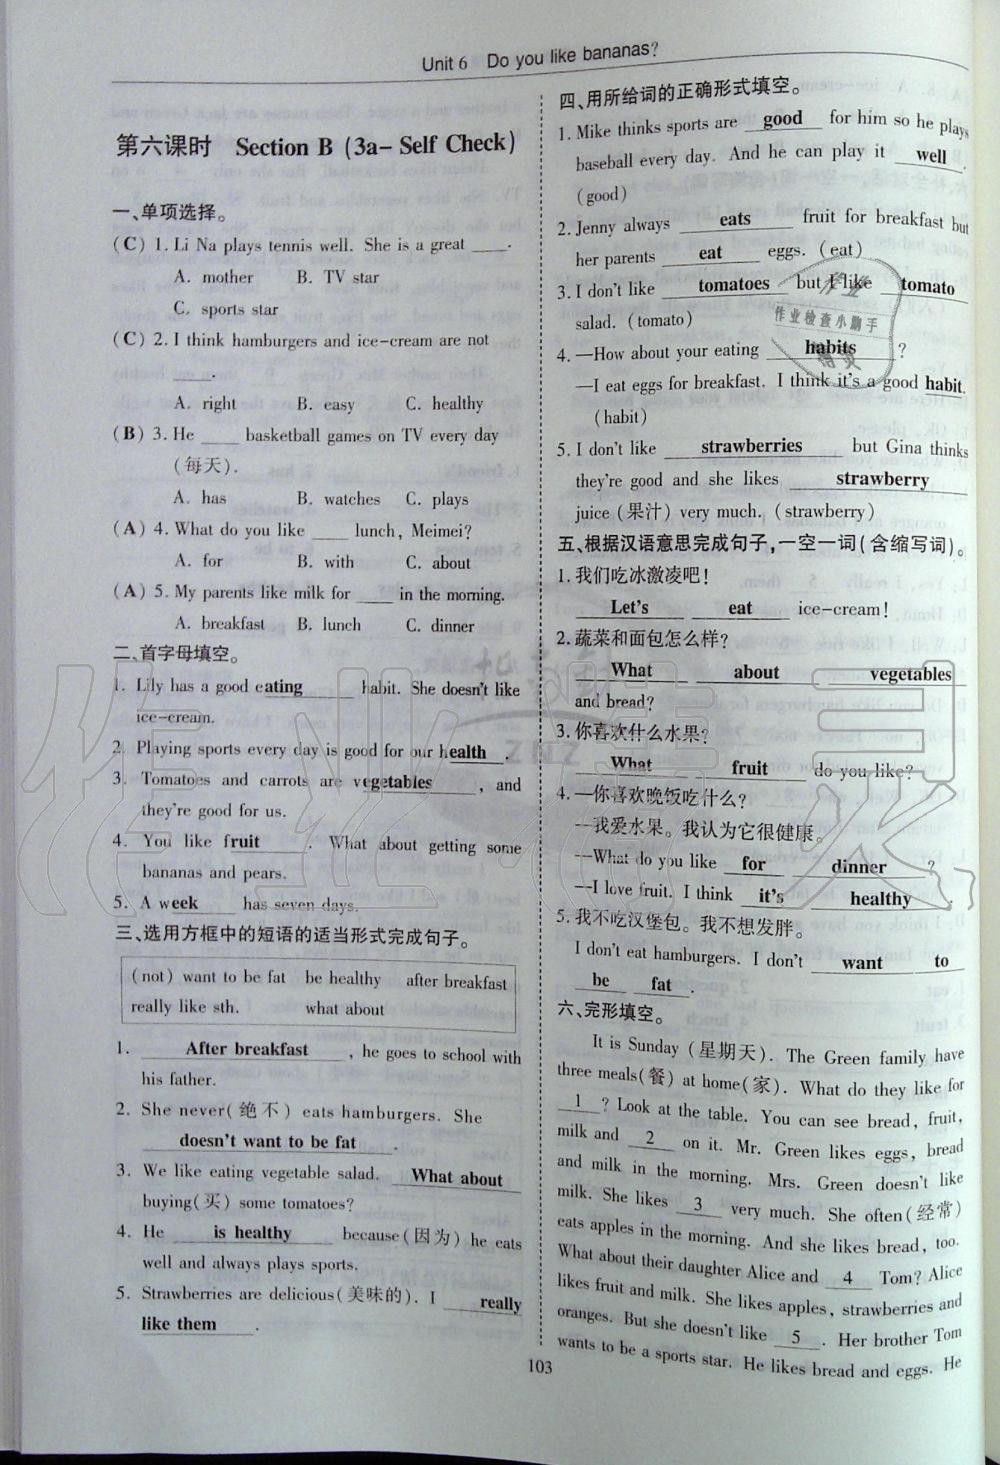 Unit 6 Do you like bananas?
第六课时 Section B (3a- Self Check)
一、单项选择。
(C) 1. Li Na plays tennis well. She is a great ____.
A. mother B. TV star
C. sports star
(C) 2. I think hamburgers and ice-cream are not
____.
A. right B. easy C. healthy
(B) 3. He ____ basketball games on TV every day
(每天).
A. has B. watches C. plays
(A) 4. What do you like ____ lunch, Meimei?
A. for B. with C. about
(A) 5. My parents like milk for ____ in the morning.
A. breakfast B. lunch C. dinner
二、首字母填空。
1. Lily has a good eating habit. She doesn't like
ice-cream.
2. Playing sports every day is good for our health.
3. Tomatoes and carrots are vegetables, and
they're good for us.
4. You like fruit. What about getting some
bananas and pears.
5. A week has seven days.
三、选用方框中的短语的适当形式完成句子。
(not) want to be fat be healthy after breakfast
really like sth. what about
1. After breakfast, he goes to school with
his father.
2. She never(绝不) eats hamburgers. She
doesn't want to be fat.
3. We like eating vegetable salad. What about
buying(买) some tomatoes?
4. He is healthy because(因为) he eats
well and always plays sports.
5. Strawberries are delicious(美味的). I really
like them.
四、用所给词的正确形式填空。
1. Mike thinks sports are good for him so he plays
baseball every day. And he can play it well.
(good)
2. Jenny always eats fruit for breakfast but
her parents eat eggs. (eat)
3. I don't like tomatoes but I like tomato
salad. (tomato)
4. —How about your eating habits?
—I eat eggs for breakfast. I think it's a good habit.
(habit)
5. I don't like strawberries but Gina thinks
they're good and she likes strawberry
juice (果汁) very much. (strawberry)
五、根据汉语意思完成句子,一空一词(含缩写词)。
1. 我们吃冰激凌吧!
Let's eat ice-cream!
2. 蔬菜和面包怎么样?
What about vegetables
and bread?
3. 你喜欢什么水果?
What fruit do you like?
4. —你喜欢晚饭吃什么?
—我爱水果。我认为它很健康。
—What do you like for dinner?
—I love fruit. I think it's healthy.
5. 我不吃汉堡包。我不想发胖。
I don't eat hamburgers. I don't want to
be fat.
六、完形填空。
It is Sunday (星期天). The Green family have
three meals(餐) at home(家). What do they like for
1 ? Look at the table. You can see bread, fruit,
milk and 2 on it. Mr. Green likes eggs, bread
and milk in the morning. Mrs. Green doesn't like
milk. She likes 3 very much. She often(经常)
eats apples in the morning. And she likes bread, too.
What about their daughter Alice and 4 Tom? Alice
likes fruit and milk. She likes apples, strawberries and
oranges. But she doesn't like 5 . Her brother Tom
wants to be a sports star. He likes bread and eggs. He
103
作业检查小助手